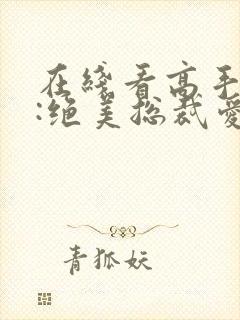 在线看高手
:绝美总裁爱
青狐妖